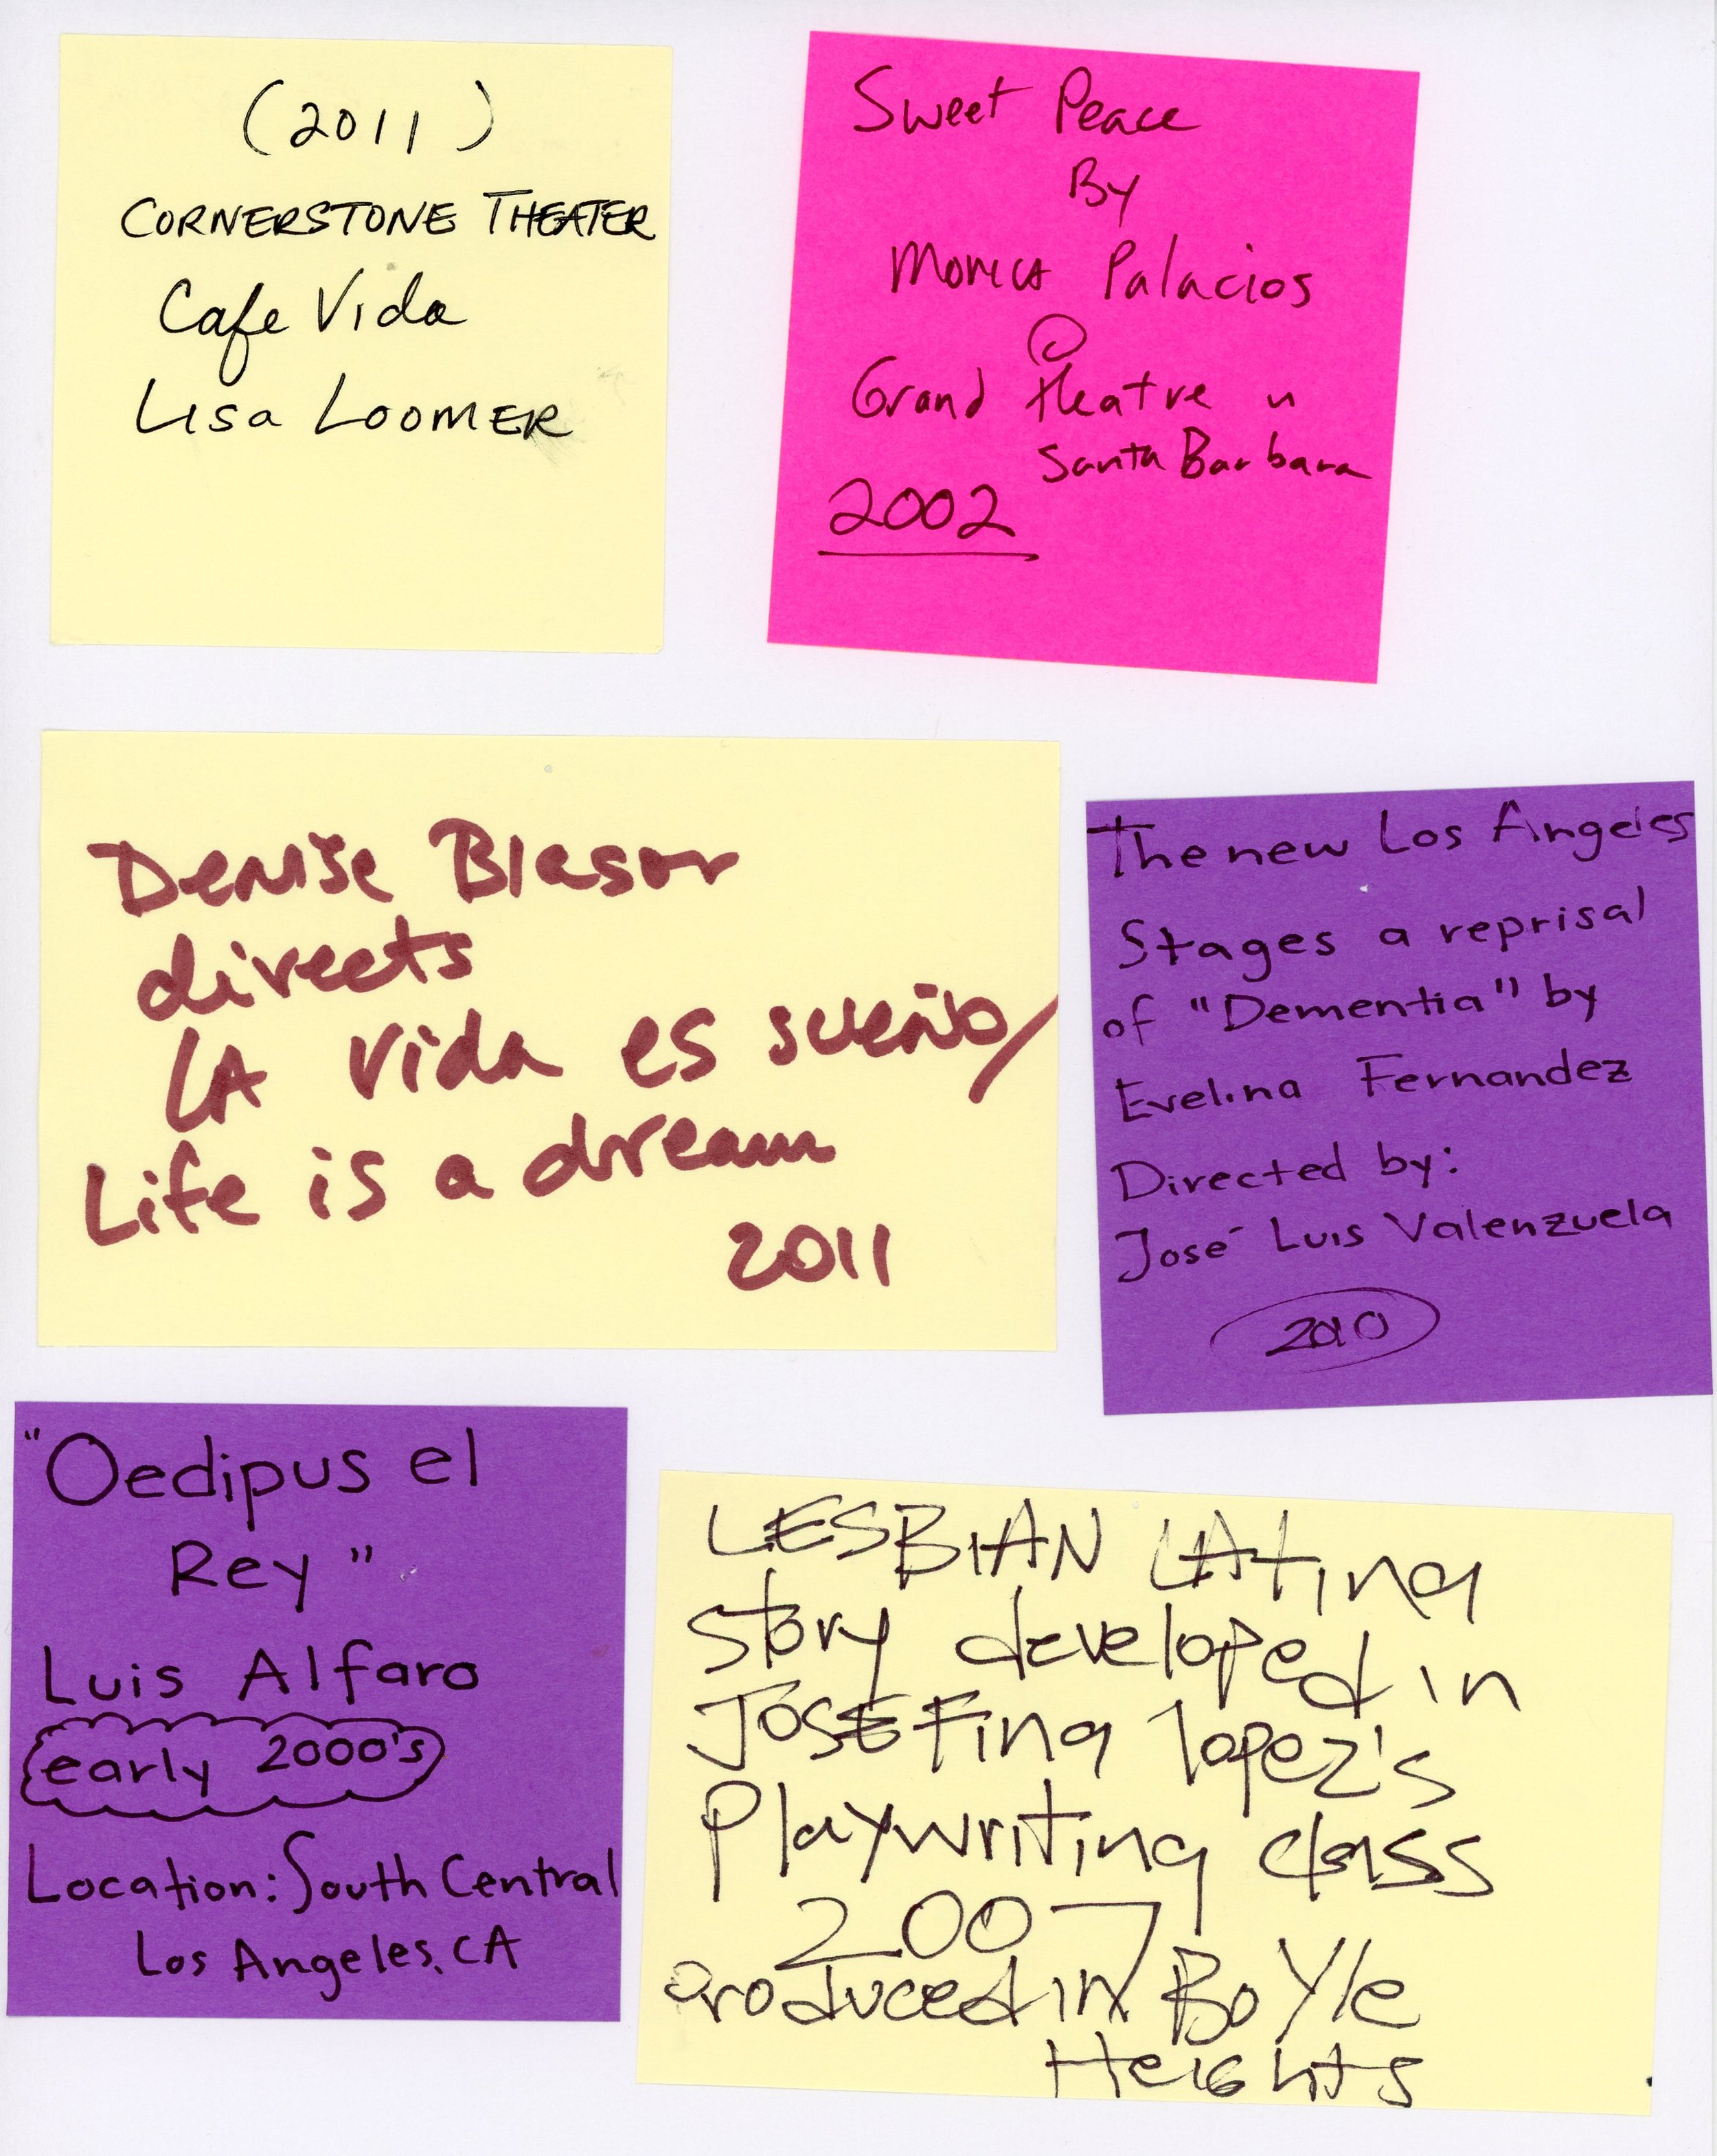 (2011)
CORNERSTONE THEATER
Cafe Vida
Lisa Loomer
Sweet Peace
By
Monica Palacios
@
Grand Theatre in
Santa Barbara
2002
Denise Blasor
directs
LA vida es sueño/
Life is a dream
2011
The new Los Angeles
Stages a reprisal
of "Dementia" by
Evelina Fernandez
Directed by:
José Luis Valenzuela
2010
"Oedipus el
Rey"
Luis Alfaro
early 2000's
Location: South Central
Los Angeles, CA
LESBIAN LAtina
story developed in
JOSEFina lopez's
Playwriting class
2007
produced in Boyle
Heights